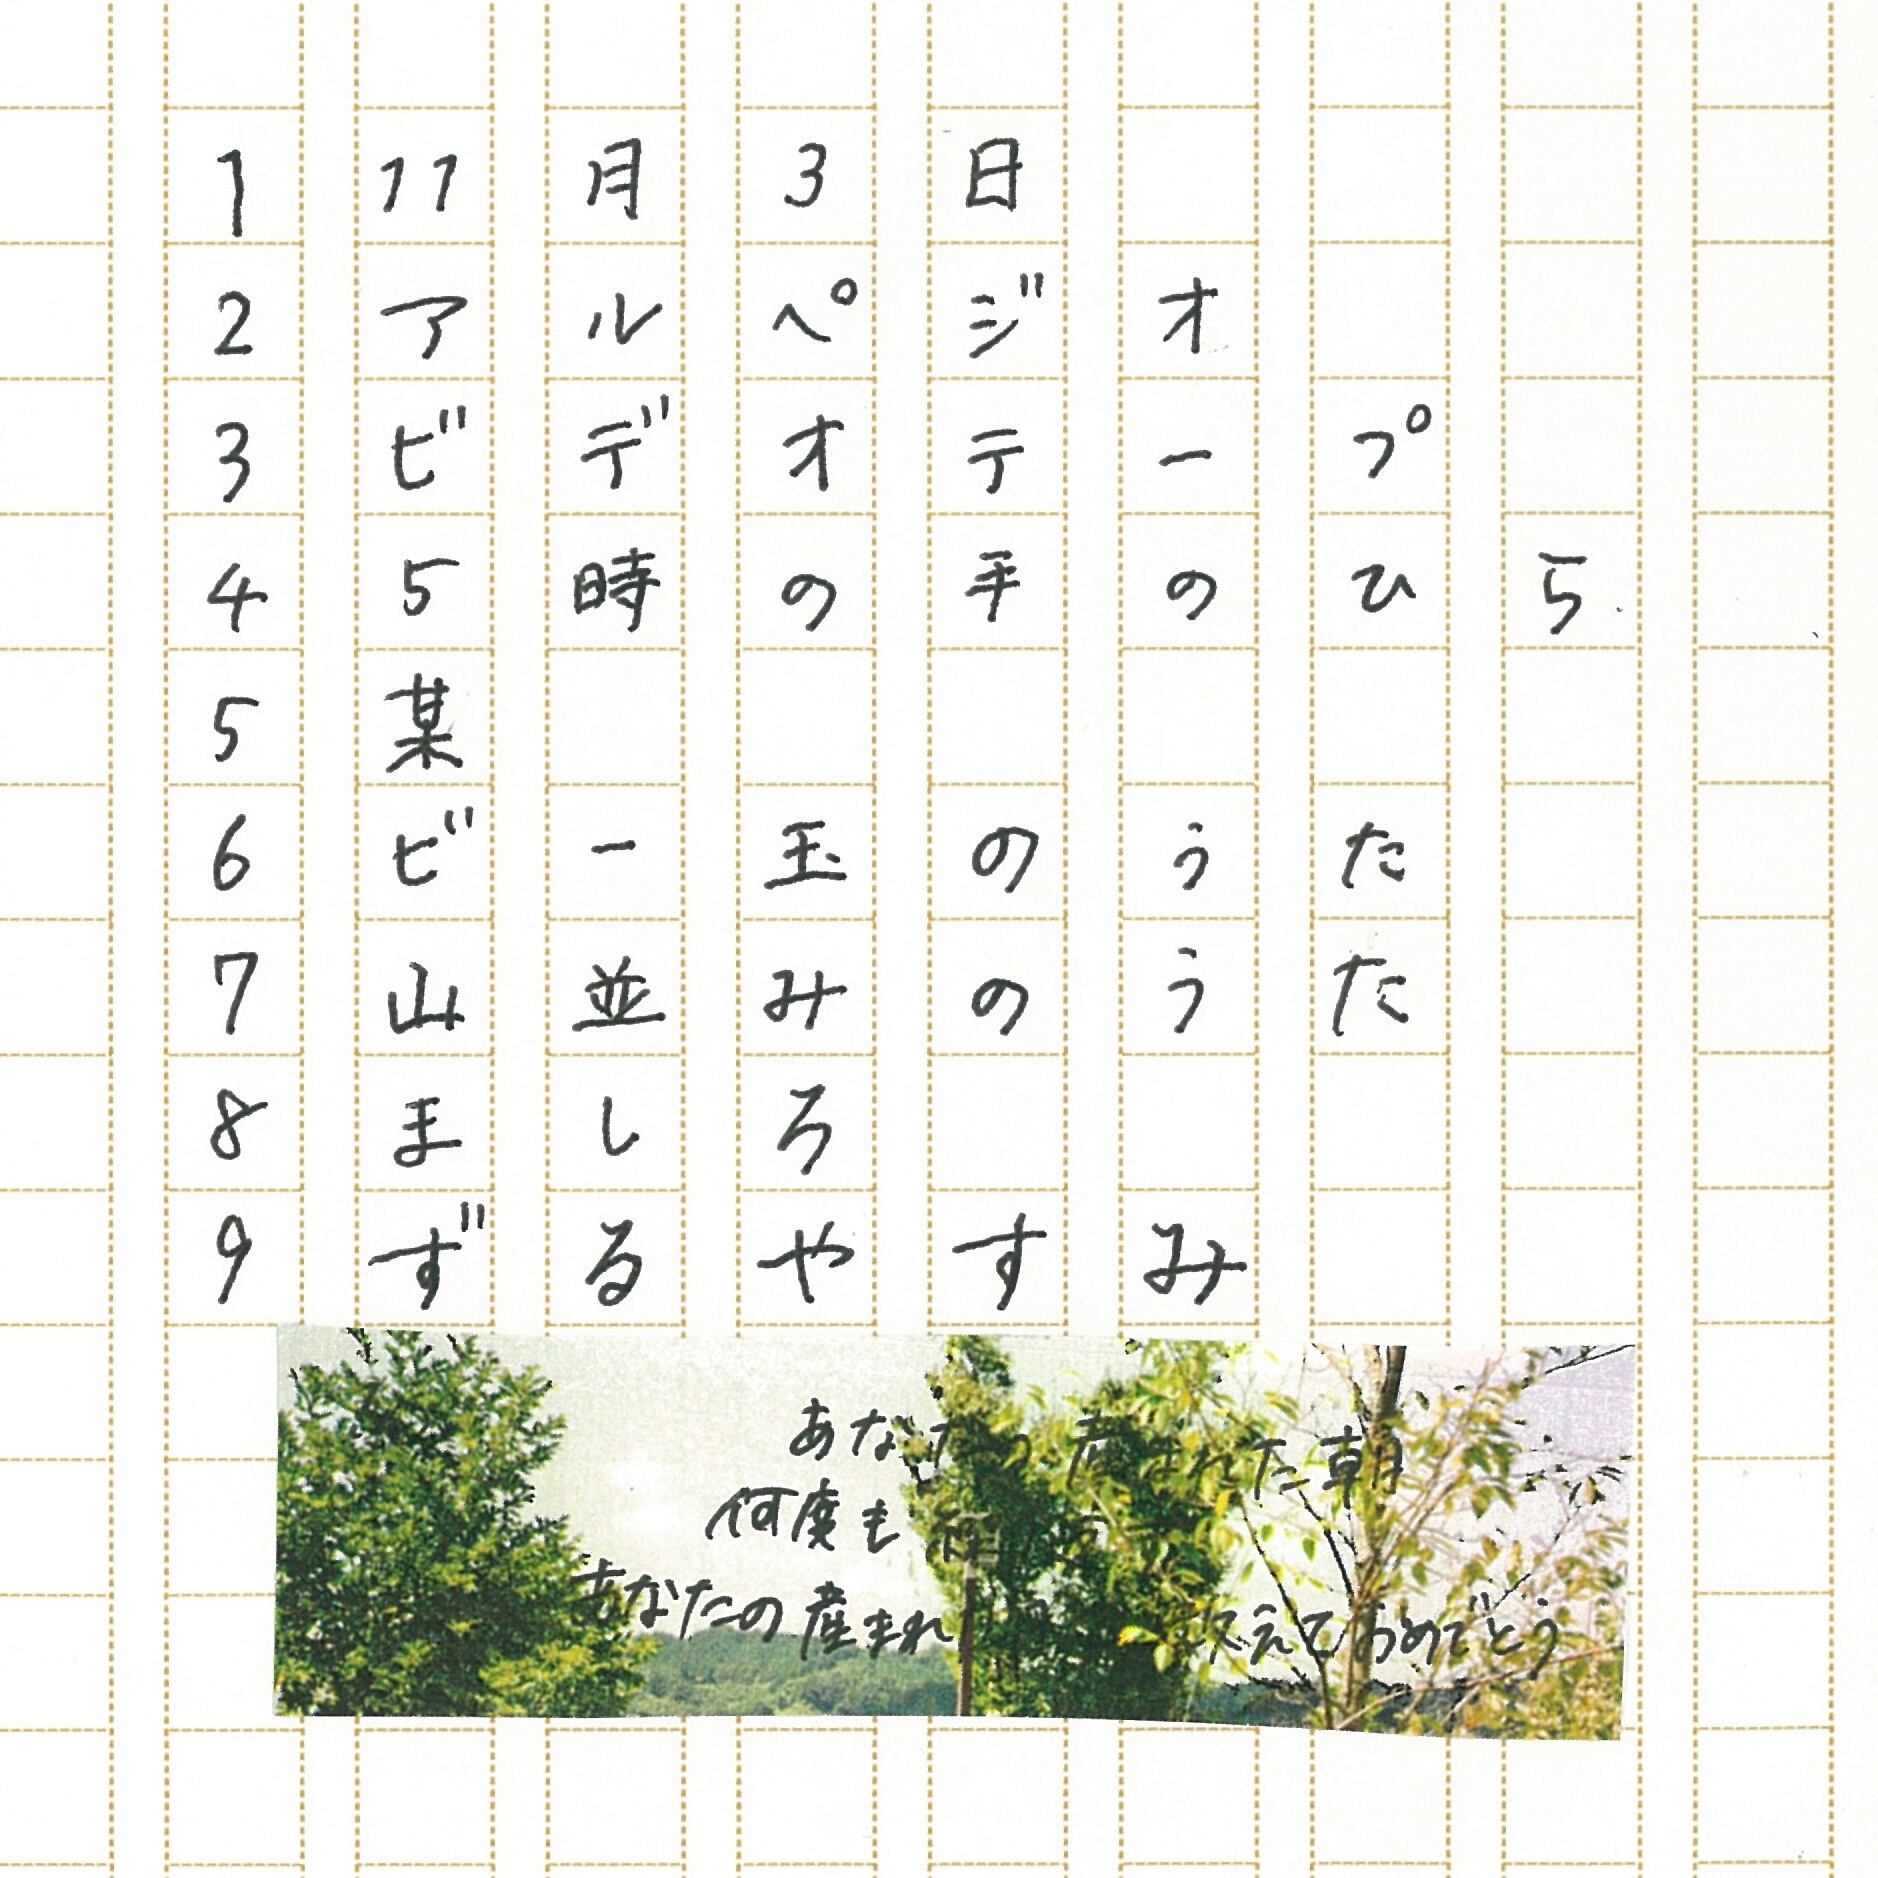 1 11月3日
2 アルペジオ
3 ビデオテープ
4 5時の手のひら
5 某
6 ビー玉のうた
7 山並みのうた
8 ましろ
9 ずるやすみ
あなたの産まれた朝
何度も
あなたの産まれ 数えておめでとう